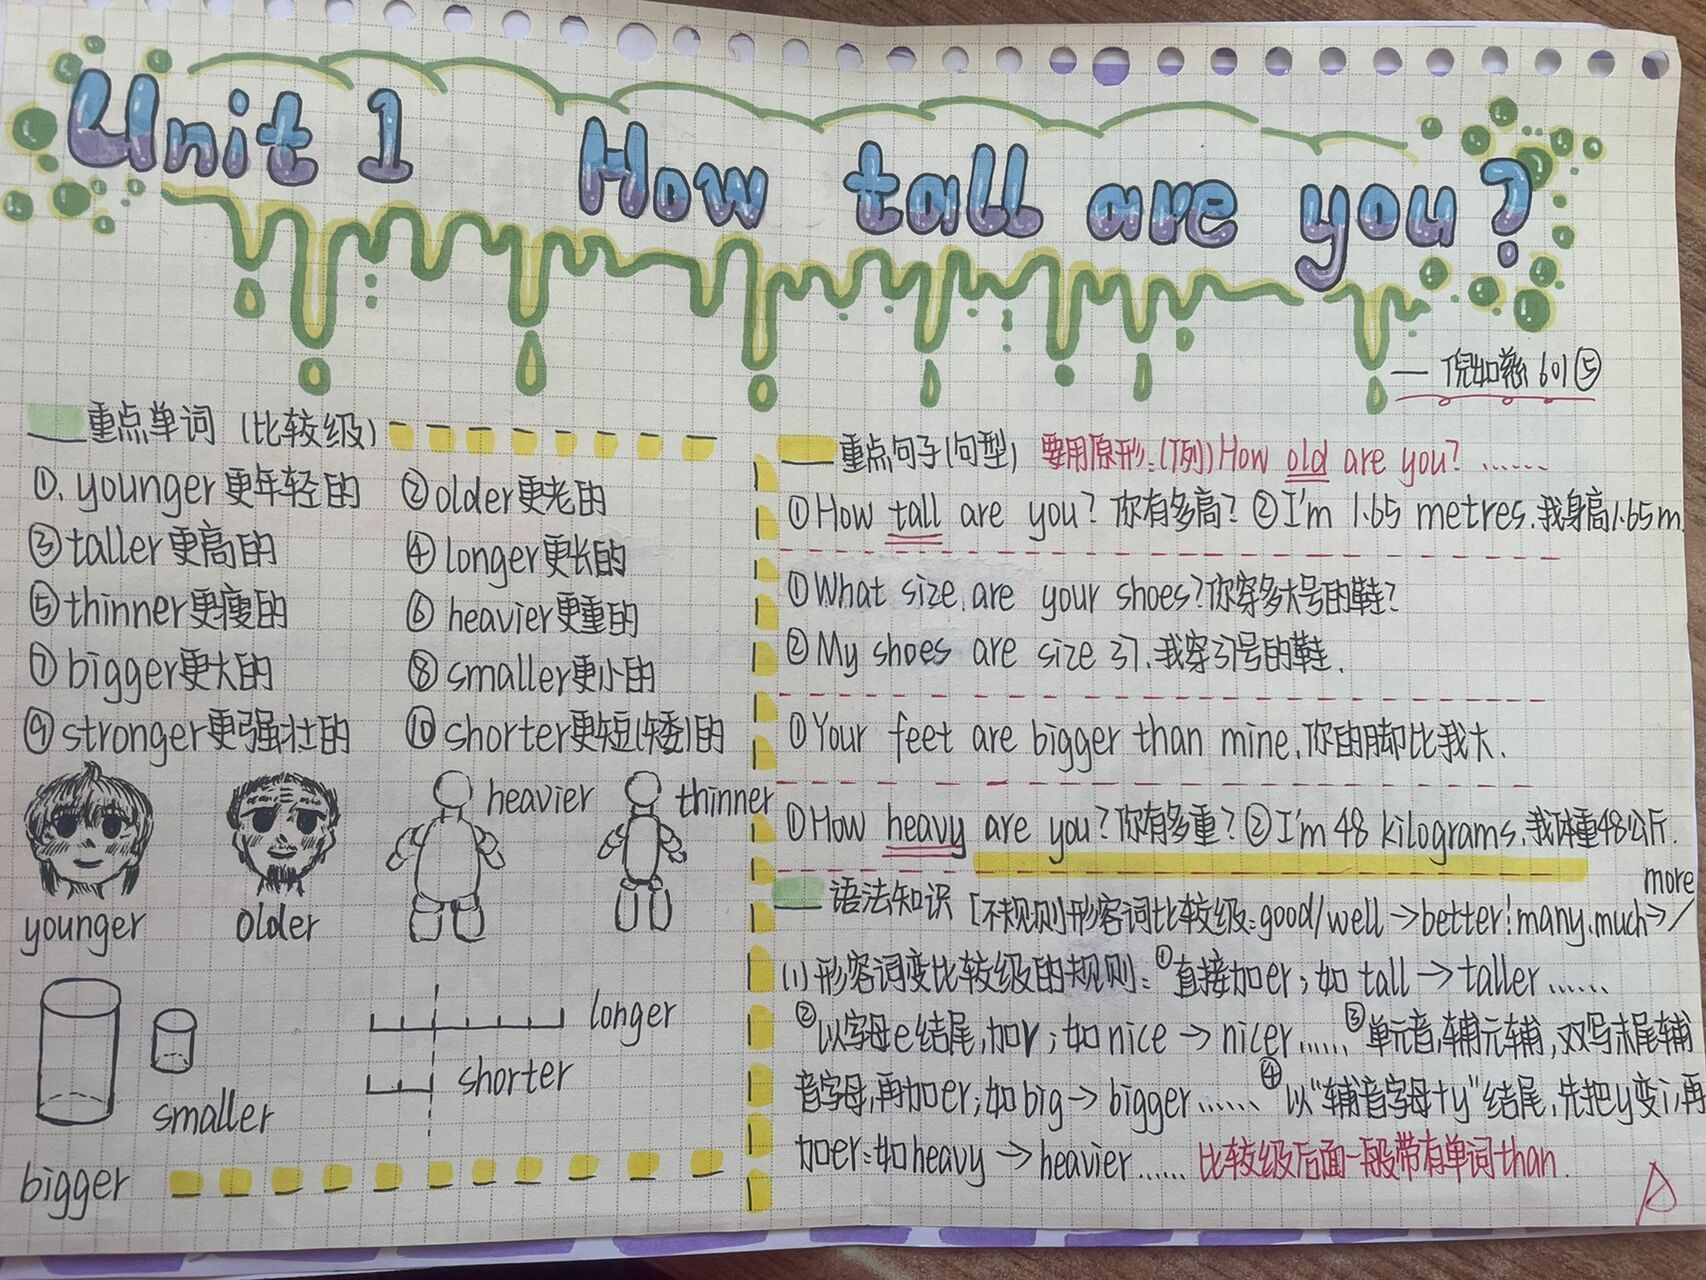 Unit 1 How tall are you?
— 倪如慈 601⑤
重点单词（比较级）
①. younger更年轻的 ②older更老的
③taller更高的 ④longer更长的
⑤thinner更瘦的 ⑥heavier更重的
⑦bigger更大的 ⑧smaller更小的
⑨stronger更强壮的 ⑩shorter更短(矮)的
heavier
thinner
younger
older
longer
shorter
smaller
bigger
重点句子(句型) 要用原形:(下列)How old are you?……
①How tall are you?你有多高?②I'm 1.65 metres.我身高1.65m.
①What size are your shoes?你穿多大号的鞋?
②My shoes are size 37.我穿37号的鞋.
①Your feet are bigger than mine.你的脚比我大.
①How heavy are you?你有多重?②I'm 48 kilograms.我体重48公斤.
语法知识 [不规则形容词比较级:good/well→better!many.much→/more
(1)形容词变比较级的规则:①直接加er;如tall→taller……
②以字母e结尾,加r;如nice→nicer……③单元音,辅元辅,双写末尾辅
音字母,再加er;如big→bigger……④以"辅音字母+y"结尾,先把y变i,再
加er:如heavy→heavier……比较级后面一般带有单词than.
A